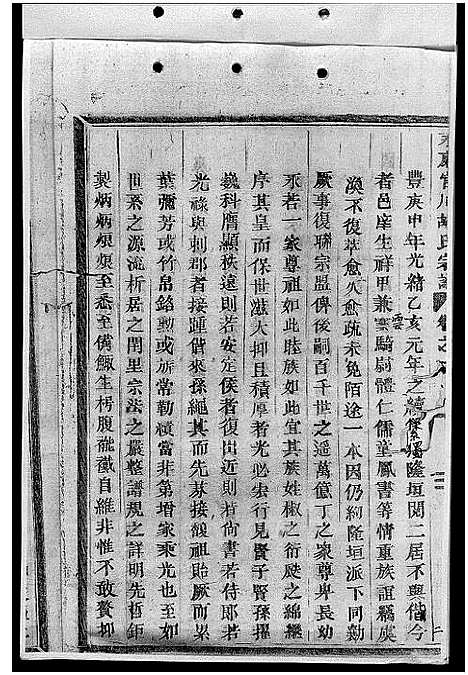 永康官川胡氏宗譜 卷之
豐庚申年光緒乙亥元年之續係獨隆垣閱二居不與偕今
者邑庠生祥甲兼雲騎尉體仁儒童鳳書等情重族誼竊虞
渙不復萃愈久愈疏未免陌途一本因仍約隆垣派下同勷
厥事復聯宗盟俾後嗣百千世之遙萬億丁之衆尊卑長幼
永若一家尊祖如此睦族如此宜其族姓椒之衍瓞之綿繩
序其皇而保世滋大抑且積厚者光必步行見賢子賢孫擢
巍科膺顯秩遠則若安定侯者復出近則若尚書若侍郎若
光祿與刺郡者接踵偕來孫繩其而先芬接緩祖貽厥而累
葉彌芳或竹帛銘勳或旂常勒績當非第增家乘光也至如
世系之源流析居之閭里宗法之嚴整譜規之詳明先哲鉅
製炳炳烺烺至悉至備鯫生枵腹蘢蓯自維非惟不敢贅抑